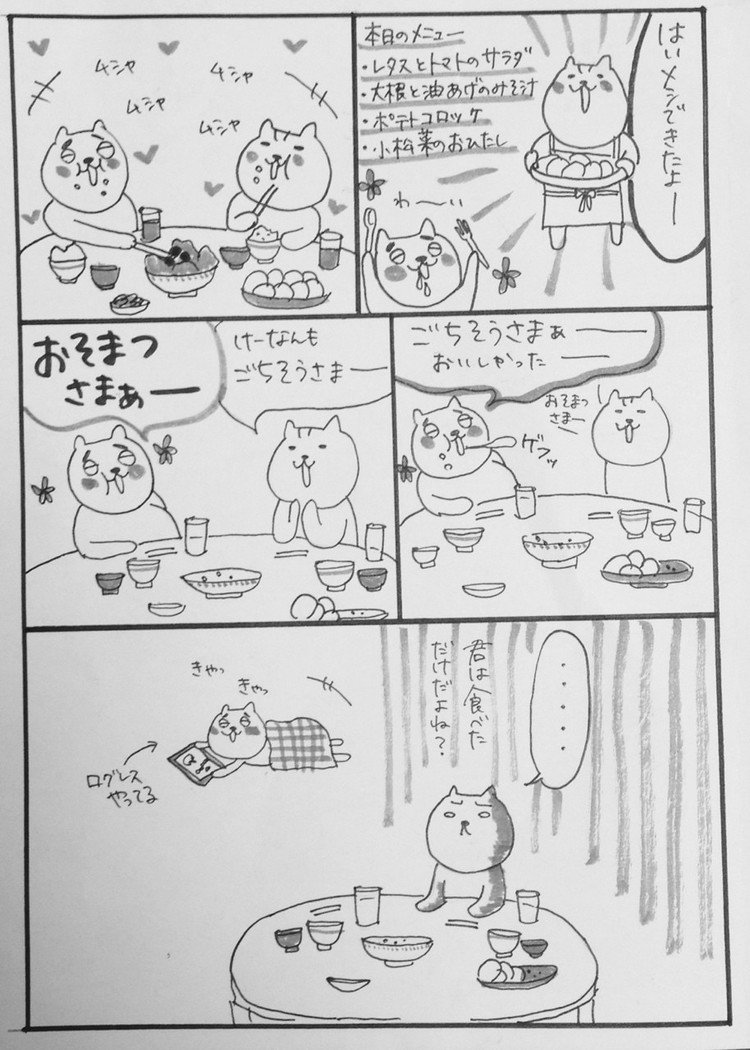 はいメシできたよー
本日のメニュー
・レタスとトマトのサラダ
・大根と油あげのみそ汁
・ポテトコロッケ
・小松菜のおひたし
わ〜〜い
ムシャ
ムシャ
ムシャ
ムシャ
ごちそうさまぁー
おいしかったー
おそまつ
さまー
ゲフッ
けーなんも
ごちそうさまー
おそまつ
さまぁー
・・・・・
君は食べた
だけだよね？
きゃっ
きゃっ
ログレス
やってる